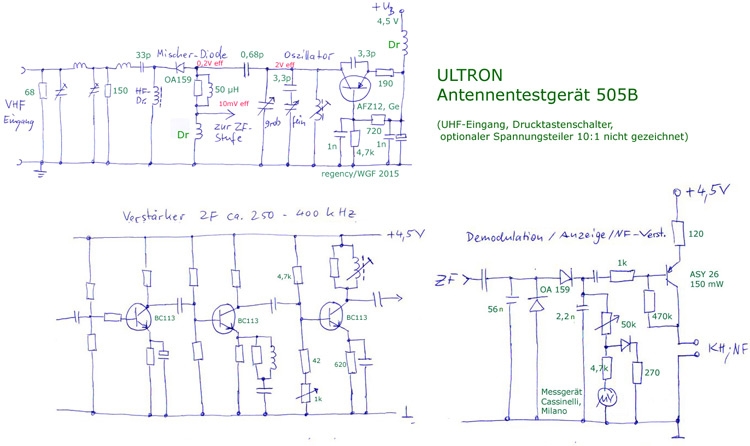 +U_B
4,5 V
Dr
33p
Mischer-Diode
0,2V eff
0,68p
Oszillator
2V eff
3,3p
3,3p
OA159
50 µH
190
68
150
HF-
Dr.
10mV eff
AFZ12, Ge
VHF
Eingang
Dr
zur ZF-
Stufe
grob
fein
720
1n
4,7k
1n
regency/WGF 2015
ULTRON
Antennentestgerät 505B
(UHF-Eingang, Drucktastenschalter,
optionaler Spannungsteiler 10:1 nicht gezeichnet)
Verstärker ZF ca. 250 - 400 kHz
+4,5V
4,7k
BC113
BC113
BC113
42
620
1k
+4,5V
Demodulation / Anzeige/NF-Verst.
120
ZF
1k
ASY 26
150 mW
OA 159
56n
2,2n
50k
470k
KH; NF
4,7k
270
Messgerät
Cassinelli,
Milano
µV